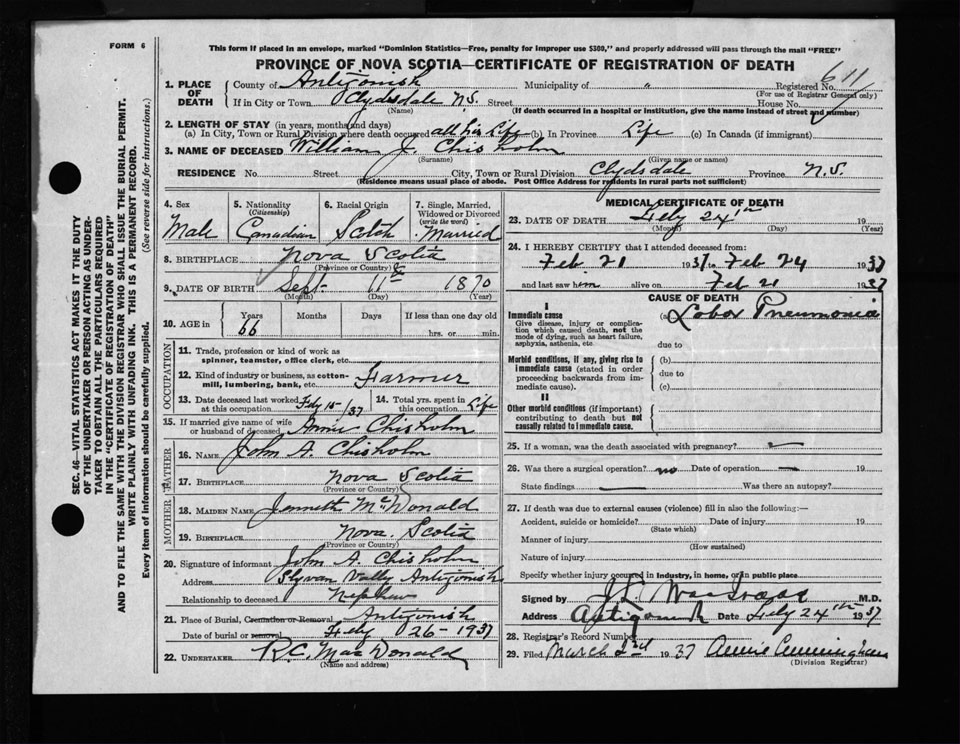 FORM 6
This form if placed in an envelope, marked "Dominion Statistics—Free, penalty for improper use $300," and properly addressed will pass through the mail "FREE"
PROVINCE OF NOVA SCOTIA—CERTIFICATE OF REGISTRATION OF DEATH
SEC. 46—VITAL STATISTICS ACT MAKES IT THE DUTY
OF THE UNDERTAKER OR PERSON ACTING AS UNDER-
TAKER TO OBTAIN ALL THE PARTICULARS REQUIRED
IN THE "CERTIFICATE OF REGISTRATION OF DEATH"
AND TO FILE THE SAME WITH THE DIVISION REGISTRAR WHO SHALL ISSUE THE BURIAL PERMIT.
WRITE PLAINLY WITH UNFADING INK. THIS IS A PERMANENT RECORD.
Every item of information should be carefully supplied. (See reverse side for instructions.)
1. PLACE OF DEATH County of Antigonish Municipality of " Registered No. 611
(For use of Registrar General only)
If in City or Town Clydsdale N.S. Street House No.
(Name) (If death occurred in a hospital or institution, give the name instead of street and number)
2. LENGTH OF STAY (in years, months and days)
(a) In City, Town or Rural Division where death occurred all his Life (b) In Province Life (c) In Canada (if immigrant)
3. NAME OF DECEASED William J. Chisholm
(Surname) (Given name or names)
RESIDENCE No. Street City, Town or Rural Division Clydsdale Province N.S.
(Residence means usual place of abode. Post Office Address for residents in rural parts not sufficient)
4. Sex Male
5. Nationality (Citizenship) Canadian
6. Racial Origin Scotch
7. Single, Married, Widowed or Divorced (write the word) Married
8. BIRTHPLACE Nova Scotia
(Province or Country)
9. DATE OF BIRTH Sept. 11th 1870
(Month) (Day) (Year)
10. AGE in Years 66 Months Days If less than one day old
hrs. or min.
OCCUPATION
11. Trade, profession or kind of work as
spinner, teamster, office clerk, etc.
12. Kind of industry or business, as cotton-
mill, lumbering, bank, etc. Farmer
13. Date deceased last worked at this occupation Feby 15/37
14. Total yrs. spent in this occupation Life
15. If married give name of wife
or husband of deceased Annie Chisholm
FATHER
16. NAME John A. Chisholm
17. BIRTHPLACE Nova Scotia
(Province or Country)
MOTHER
18. MAIDEN NAME Jenneth McDonald
19. BIRTHPLACE Nova Scotia
(Province or Country)
20. Signature of informant John A. Chisholm
Address Slyvan Vally Antigonish
Relationship to deceased Nephew
21. Place of Burial, Cremation or Removal Antigonish
Date of burial or removal Feby 26-1937
22. UNDERTAKER R.C. MacDonald
(Name and address)
MEDICAL CERTIFICATE OF DEATH
23. DATE OF DEATH Feby 24th 19
(Month) (Day) (Year)
24. I HEREBY CERTIFY that I attended deceased from:
Feb. 21 1937 to Feb 24 1937
and last saw him alive on Feb 21 1937
CAUSE OF DEATH
I
Immediate cause (a) Lobar Pneumonia
Give disease, injury or complica-
tion which caused death, not the
mode of dying, such as heart failure,
asphyxia, asthenia, etc. due to
Morbid conditions, if any, giving rise to (b)
immediate cause (stated in order
proceeding backwards from im-
mediate cause). due to
(c)
II
Other morbid conditions (if important)
contributing to death but not
causally related to immediate cause.
25. If a woman, was the death associated with pregnancy? —
26. Was there a surgical operation? no Date of operation —
State findings — Was there an autopsy?
27. If death was due to external causes (violence) fill in also the following:—
Accident, suicide or homicide? Date of injury 19
(State which)
Manner of injury
(How sustained)
Nature of injury
Specify whether injury occurred in industry, in home, or in public place
Signed by M.D.
Address Antigonish Date Feby 24th 1937
28. Registrar's Record Number
29. Filed March 2nd 1937 Annie Cunningham
(Division Registrar)